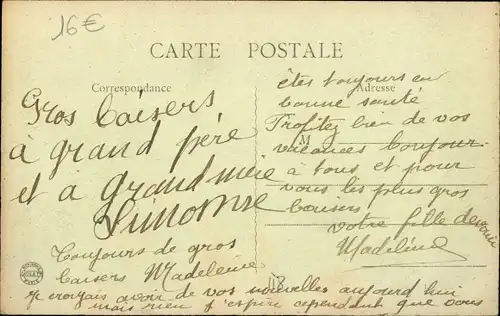 16€
CARTE POSTALE
Correspondance
Adresse
Gros baisers
à grand père
et à grand mère
Simonne
Toujours de gros
baisers Madeleine
je croyais avoir de vos nouvelles aujourd'hui
mais rien j'espère cependant que vous
êtes toujours en
bonne santé
Profitez bien de vos
M
vacances bonjour
à tous et pour
vous les plus gros
baisers
votre fille
Madeleine